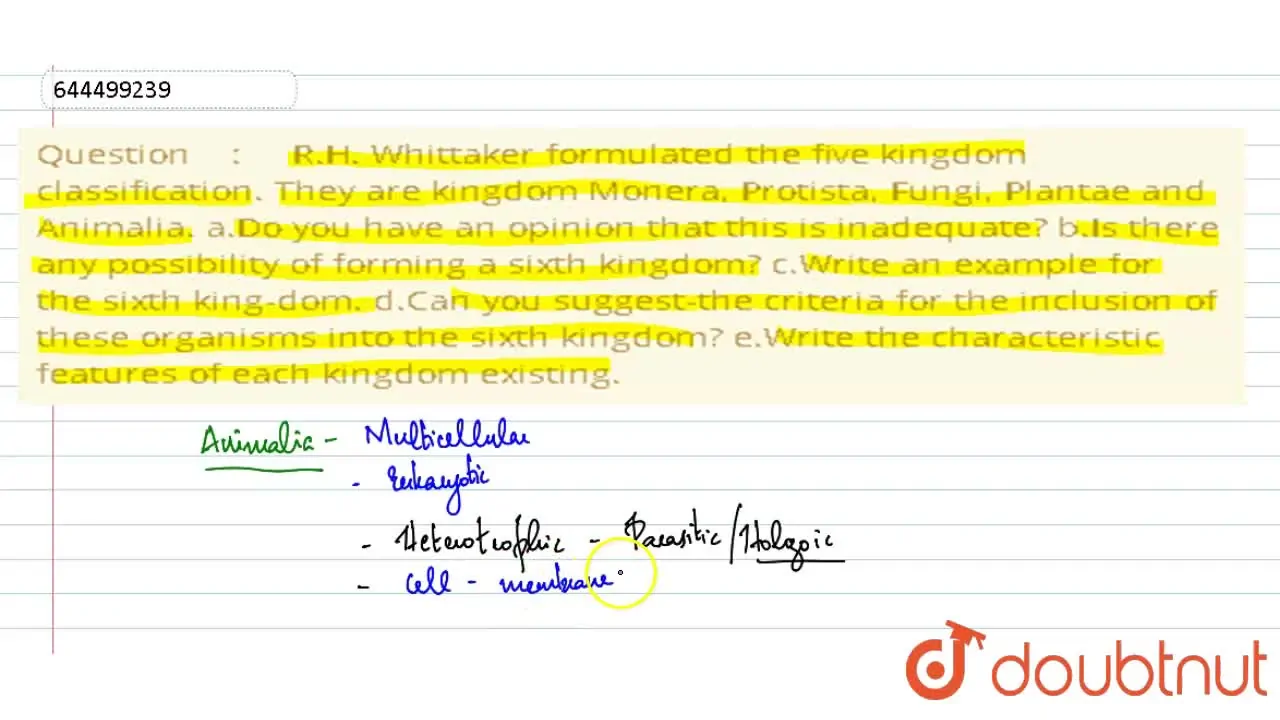 644499239
Question : R.H. Whittaker formulated the five kingdom
classification. They are kingdom Monera, Protista, Fungi, Plantae and
Animalia. a.Do you have an opinion that this is inadequate? b.Is there
any possibility of forming a sixth kingdom? c.Write an example for
the sixth king-dom. d.Can you suggest-the criteria for the inclusion of
these organisms into the sixth kingdom? e.Write the characteristic
features of each kingdom existing.
Animalia - Multicellular
- Eukaryotic
- Heterotrophic - Parasitic / Holozoic
- Cell - membrane
doubtnut